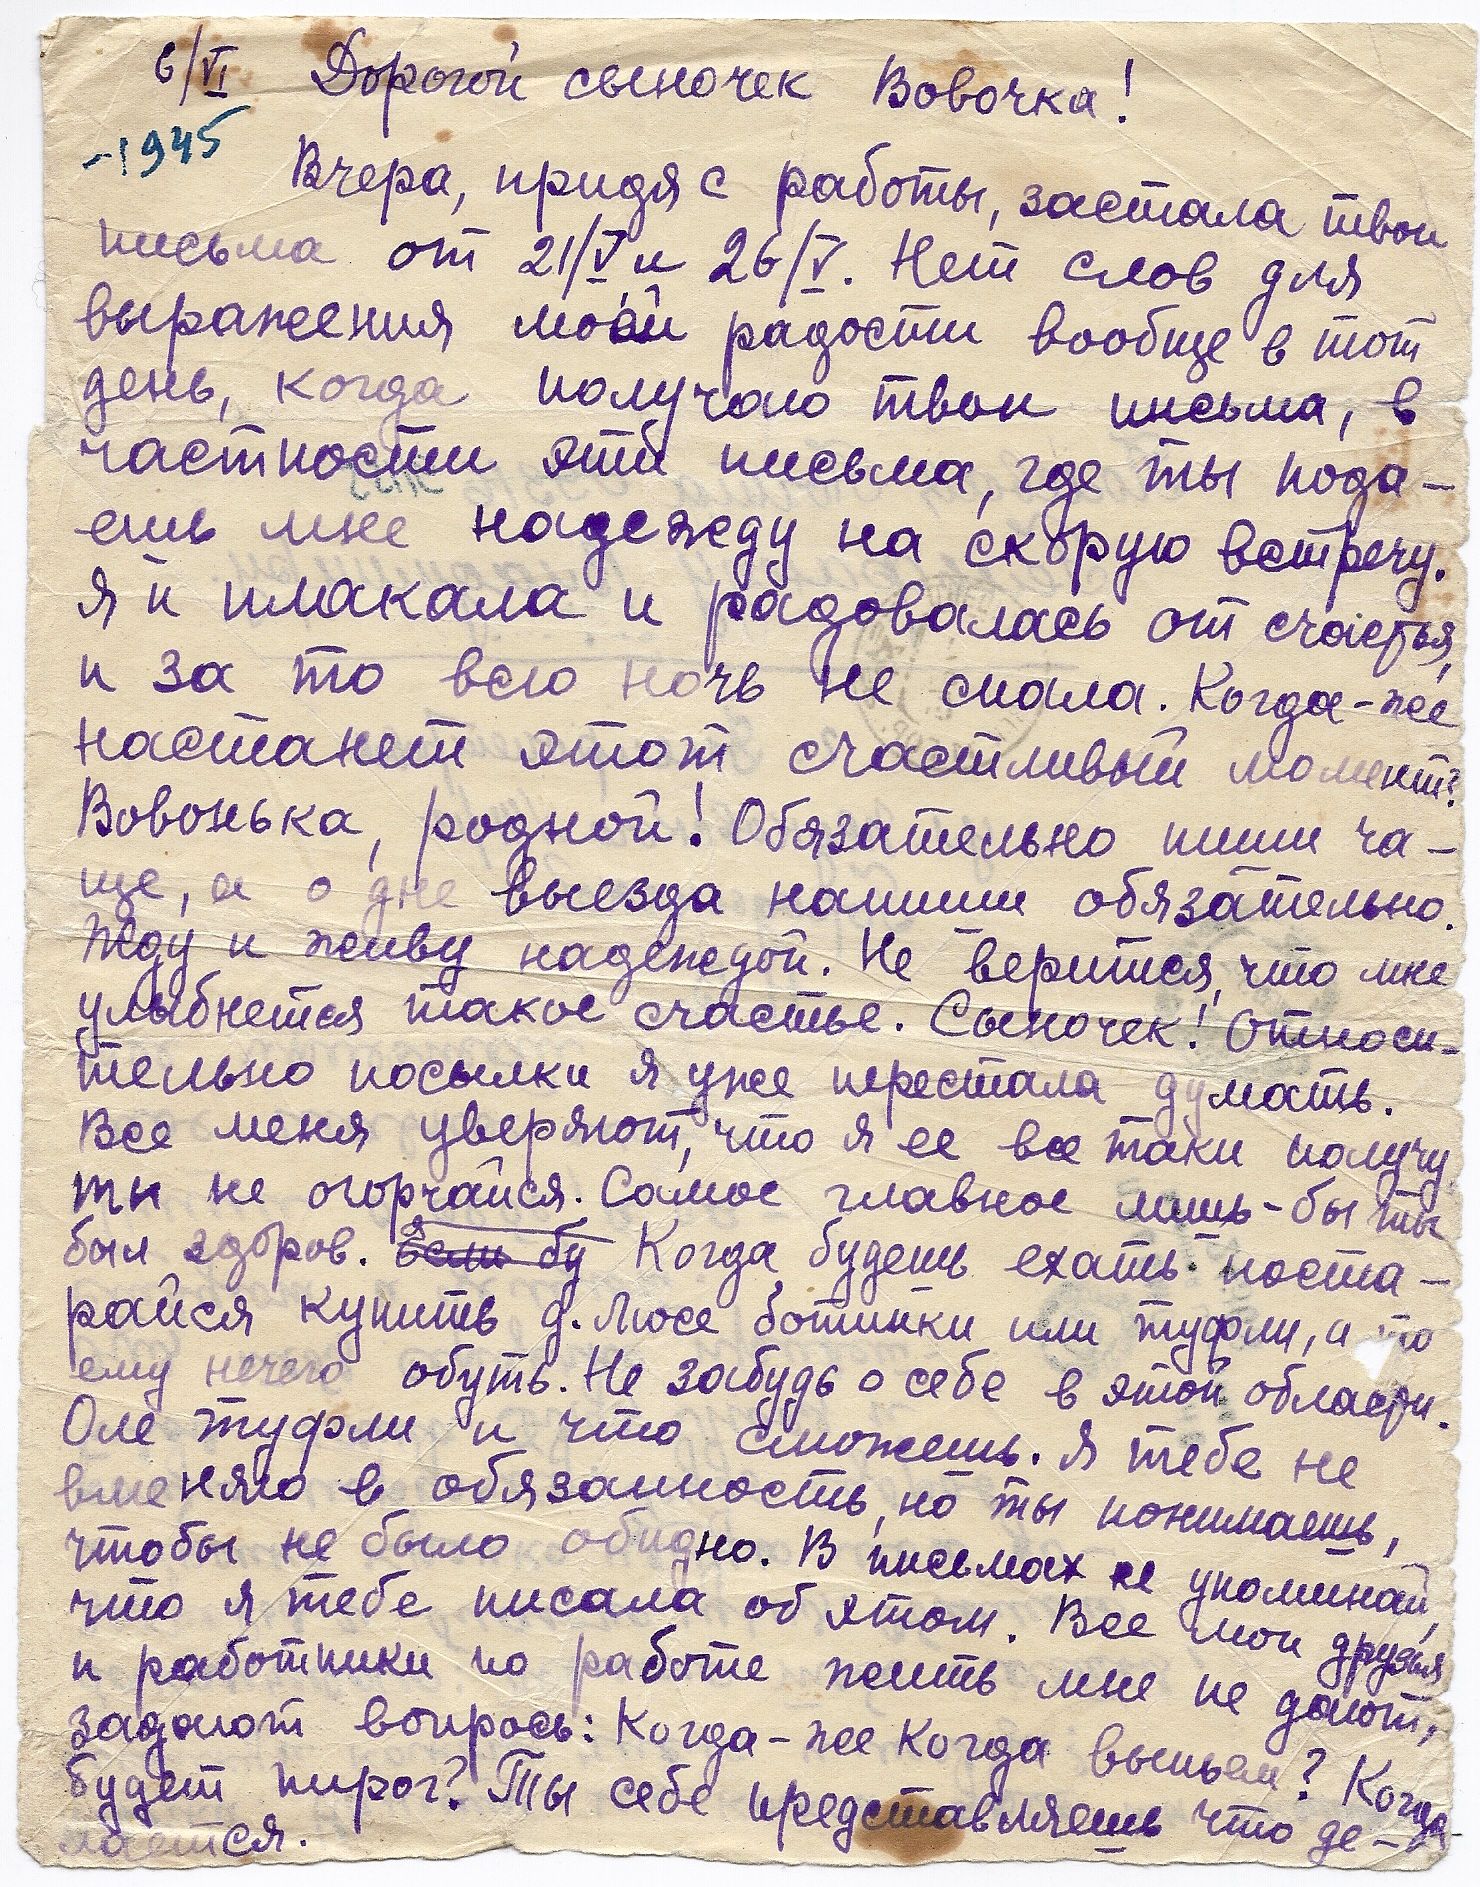 6/VI Дорогой сыночек Вовочка!
-1945
Вчера, придя с работы, застала твои
письма от 21/V и 26/V. Нет слов для
выражения моей радости вообще в тот
день, когда получаю твои письма, в
частности эти письма, где ты пода-
ешь мне надежду на скорую встречу.
Я и плакала и радовалась от счастья,
и за то всю ночь не спала. Когда-же
настанет этот счастливый момент?
Вовонька, родной! Обязательно пиши ча-
ще, а о дне выезда напиши обязательно.
Жду и живу надеждой. Не верится, что мне
улыбнется такое счастье. Сыночек! Относи-
тельно посылки я уже перестала думать.
Все меня уверяют, что я ее все таки получу
ты не огорчайся. Самое главное лишь-бы ты
был здоров. Если бу Когда будешь ехать поста-
райся купить д. Люсе ботинки или туфли, а то
ему нечего обуть. Не забудь о себе в этой области.
Оле туфли и что сможешь. Я тебе не
вменяю в обязанность, но ты понимаешь,
чтобы не было обидно. В письмах не упоминай,
что я тебе писала об этом. Все мои друзья
и работники по работе жить мне не дают,
задают вопросы: Когда-же Когда выпьем? Когда
будет пирог? Ты себе представляешь что де-
лается.